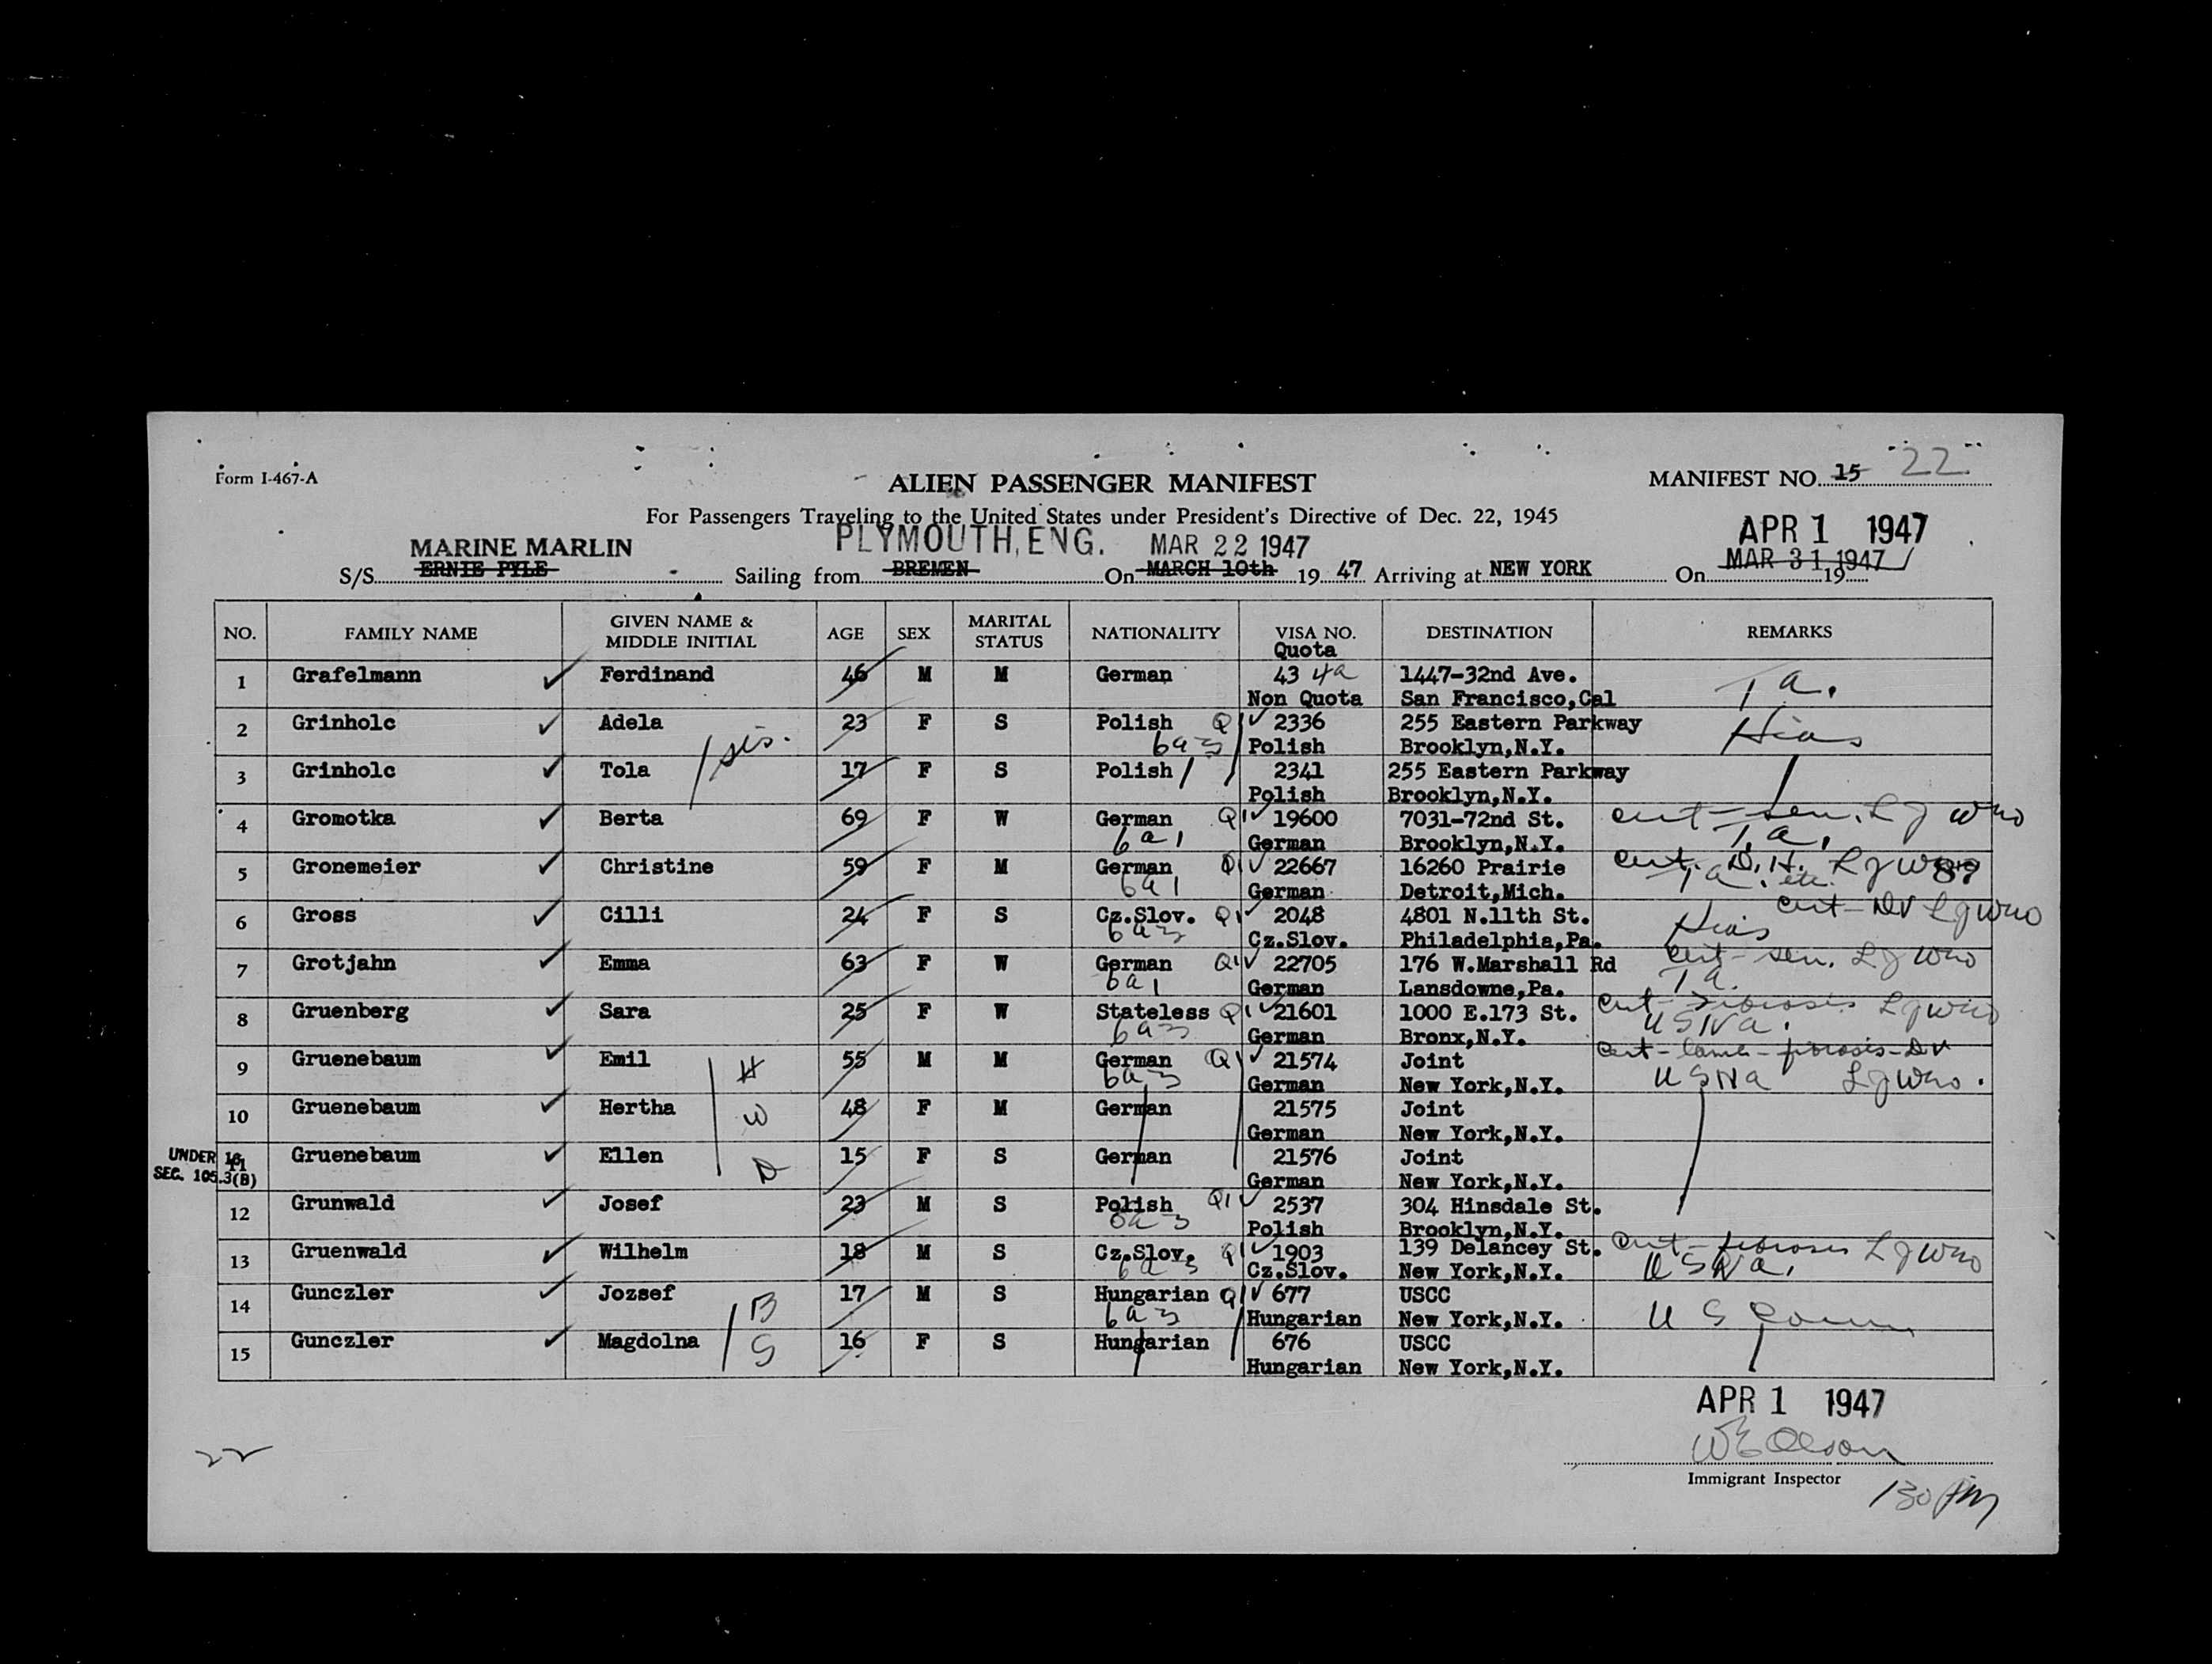 Form I-467-A
ALIEN PASSENGER MANIFEST
MANIFEST NO. 15 "22"
For Passengers Traveling to the United States under President's Directive of Dec. 22, 1945
APR 1 1947
MARINE MARLIN PLYMOUTH, ENG. MAR 22 1947
S/S ERNIE PYLE Sailing from BREMEN On MARCH 10th 19 47 Arriving at NEW YORK On MAR 31 1947 19
NO. FAMILY NAME GIVEN NAME & MIDDLE INITIAL AGE SEX MARITAL STATUS NATIONALITY VISA NO. DESTINATION REMARKS
Quota
1 Grafelmann Ferdinand 46 M M German 43 4a 1447-32nd Ave. T a.
Non Quota San Francisco,Cal
2 Grinholc Adela 23 F S Polish Q1 2336 255 Eastern Parkway Hias
sis. 6a3 Polish Brooklyn,N.Y.
3 Grinholc Tola 17 F S Polish 2341 255 Eastern Parkway
Polish Brooklyn,N.Y.
4 Gromotka Berta 69 F W German Q1 19600 7031-72nd St. cert-sen. L J
6a1 German Brooklyn,N.Y. T.a.
5 Gronemeier Christine 59 F M German Q1 22667 16260 Prairie cert. D.H. L J
6a1 German Detroit,Mich. T a. etc.
6 Gross Cilli 24 F S Cz.Slov. Q1 2048 4801 N.11th St. cert-DV L J
6a3 Cz.Slov. Philadelphia,Pa. Hias
7 Grotjahn Emma 63 F W German Q1 22705 176 W.Marshall Rd cert-sen. L J
6a1 German Lansdowne,Pa. T a.
8 Gruenberg Sara 25 F W Stateless Q1 21601 1000 E.173 St. cert-fibrosis L J
6a3 German Bronx,N.Y. USNa.
9 Gruenebaum Emil H 55 M M German Q1 21574 Joint cert- fibrosis-DV
6a3 German New York,N.Y. USNa L J
10 Gruenebaum Hertha W 48 F M German 21575 Joint
German New York,N.Y.
UNDER 16
SEC. 105.3(B)
11 Gruenebaum Ellen D 15 F S German 21576 Joint
German New York,N.Y.
12 Grunwald Josef 23 M S Polish Q1 2537 304 Hinsdale St.
6a3 Polish Brooklyn,N.Y.
13 Gruenwald Wilhelm 18 M S Cz.Slov. Q1 1903 139 Delancey St. cert-fibrosis L J
6a3 Cz.Slov. New York,N.Y. USNa.
14 Gunczler Jozsef B 17 M S Hungarian Q1 677 USCC U S Comm
6a3 Hungarian New York,N.Y.
15 Gunczler Magdolna S 16 F S Hungarian 676 USCC
Hungarian New York,N.Y.
APR 1 1947
22
WE Olson
Immigrant Inspector
130 PM